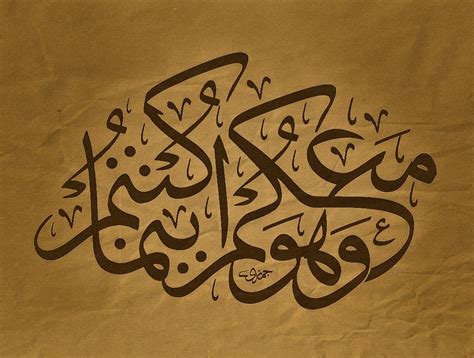 وهو معكم اينما كنتم